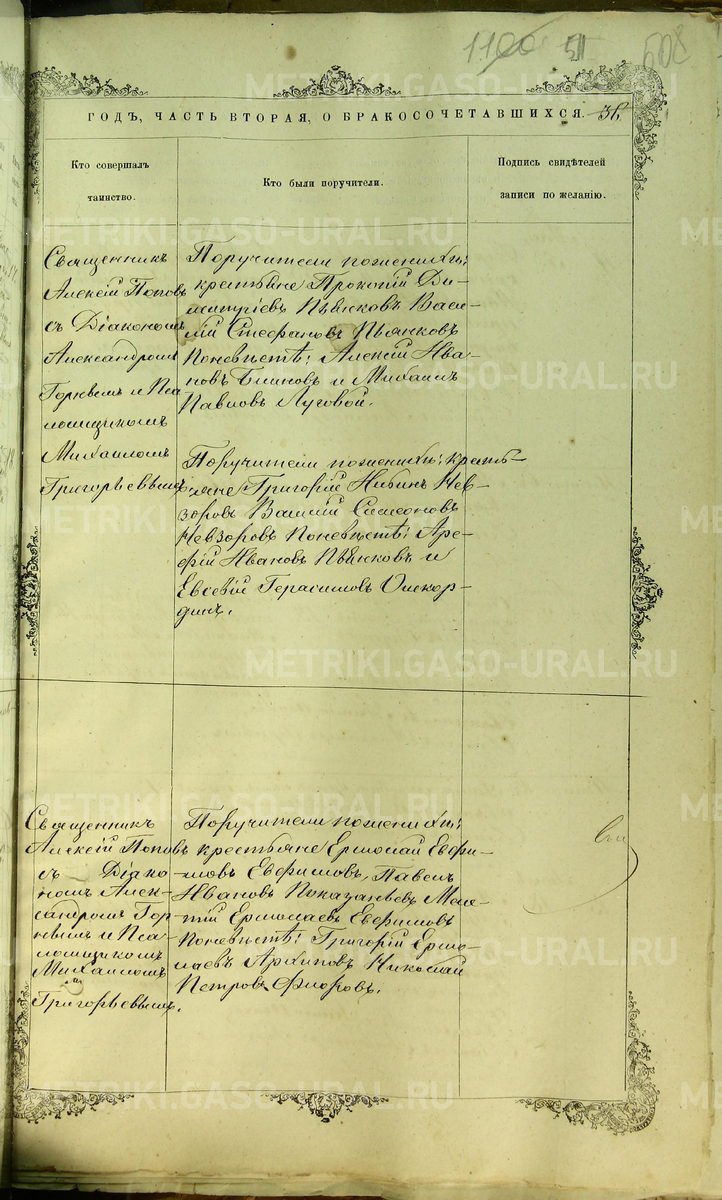 1100 511 508
ГОДЪ, ЧАСТЬ ВТОРАЯ, О БРАКОСОЧЕТАВШИХСЯ. 36
Кто совершалъ
таинство.
Кто были поручители.
Подпись свидѣтелей
записи по желанію.
Священникъ
Алексій Поповъ
съ Діакономъ
Александромъ
Горнымъ и Пса
ломщикомъ
Михаиломъ
Григорьевымъ
Поручители по женихѣ:
крестьяне Прокопій Ди-
митріевъ Пьянковъ Васи-
лій Стефановъ Пьянковъ
По невѣстѣ: Алексій Ива-
новъ Блиновъ и Михаилъ
Павловъ Луговой.
Поручители по женихѣ: кресть-
яне Григорій Нев-
зоровъ Василій Симеоновъ
Невзоровъ По невѣстѣ: Аре-
фій Ивановъ Пьянковъ и
Евсевій Герасимовъ Ошкор-
динъ.
Священникъ
Алексій Поповъ
съ Діако-
номъ Алек-
сандромъ Гор-
нымъ и Пса-
ломщикомъ
Михаиломъ
Григорьевымъ.
Поручители по женихѣ:
крестьяне Ермолай Евфи-
мовъ Евфимовъ, Павелъ
Ивановъ Показаньевъ Меле-
тій Ермолаевъ Евфимовъ
По невѣстѣ: Григорій Ермо-
лаевъ Архиповъ Николай
Петровъ Флоровъ.
METRIKI.GASO-URAL.RU